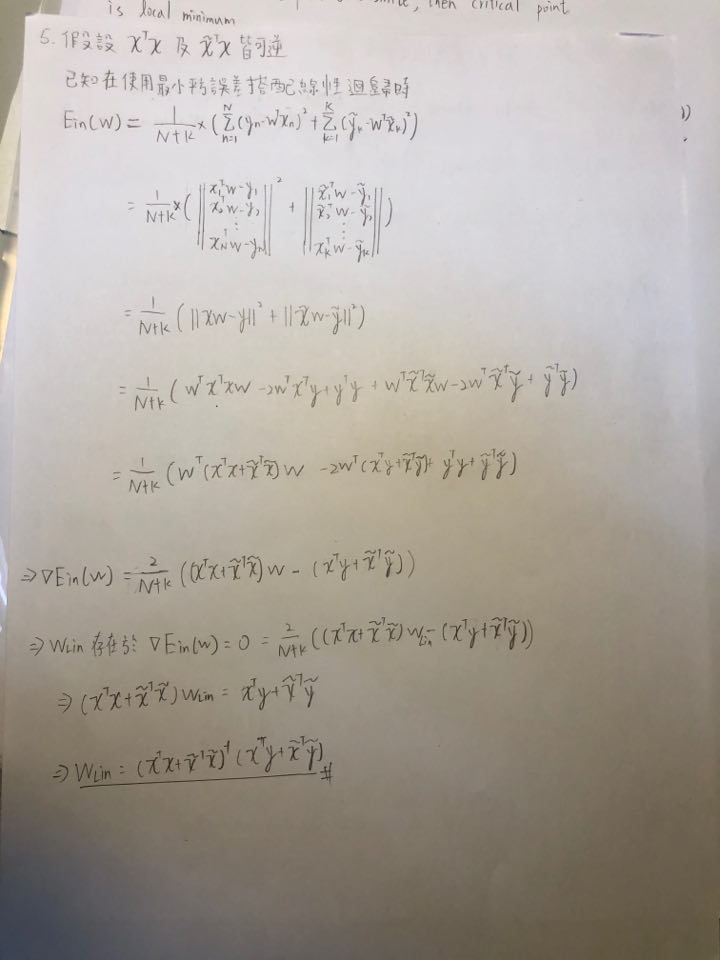 is local minimum
, then critical point
5. 假設 XᵀX 及 X̃ᵀX 皆可逆
已知在使用最小平方誤差搭配線性迴歸時
Ein(W) = 1/(N+K) × ( Σ_{n=1}^{N} (yₙ-Wᵀxₙ)² + Σ_{k=1}^{K} (ỹₖ-Wᵀx̃ₖ)² )
= 1/(N+K) × ( ‖ x₁ᵀw-y₁ x₂ᵀw-y₂ ⋮ x_Nᵀw-y_N ‖² + ‖ x̃₁ᵀw-ỹ₁ x̃₂ᵀw-ỹ₂ ⋮ x_Kᵀw-ỹ_K ‖² )
= 1/(N+K) ( ‖XW-y‖² + ‖X̃W-ỹ‖² )
= 1/(N+K) ( WᵀXᵀXW -2WᵀXᵀy + yᵀy + WᵀX̃ᵀX̃W -2WᵀX̃ᵀỹ + ỹᵀỹ )
= 1/(N+K) ( Wᵀ(XᵀX+X̃ᵀX̃)W -2Wᵀ(Xᵀy+X̃ᵀỹ) + yᵀy + ỹᵀỹ )
⇒ ∇Ein(W) = 2/(N+K) ( (XᵀX+X̃ᵀX̃)W - (Xᵀy+X̃ᵀỹ) )
⇒ WLin 存在於 ∇Ein(W) = 0 = 2/(N+K) ( (XᵀX+X̃ᵀX̃)WLin - (Xᵀy+X̃ᵀỹ) )
⇒ (XᵀX+X̃ᵀX̃)WLin = Xᵀy+X̃ᵀỹ
⇒ WLin = (XᵀX+X̃ᵀX̃)⁻¹(Xᵀy+X̃ᵀỹ) #